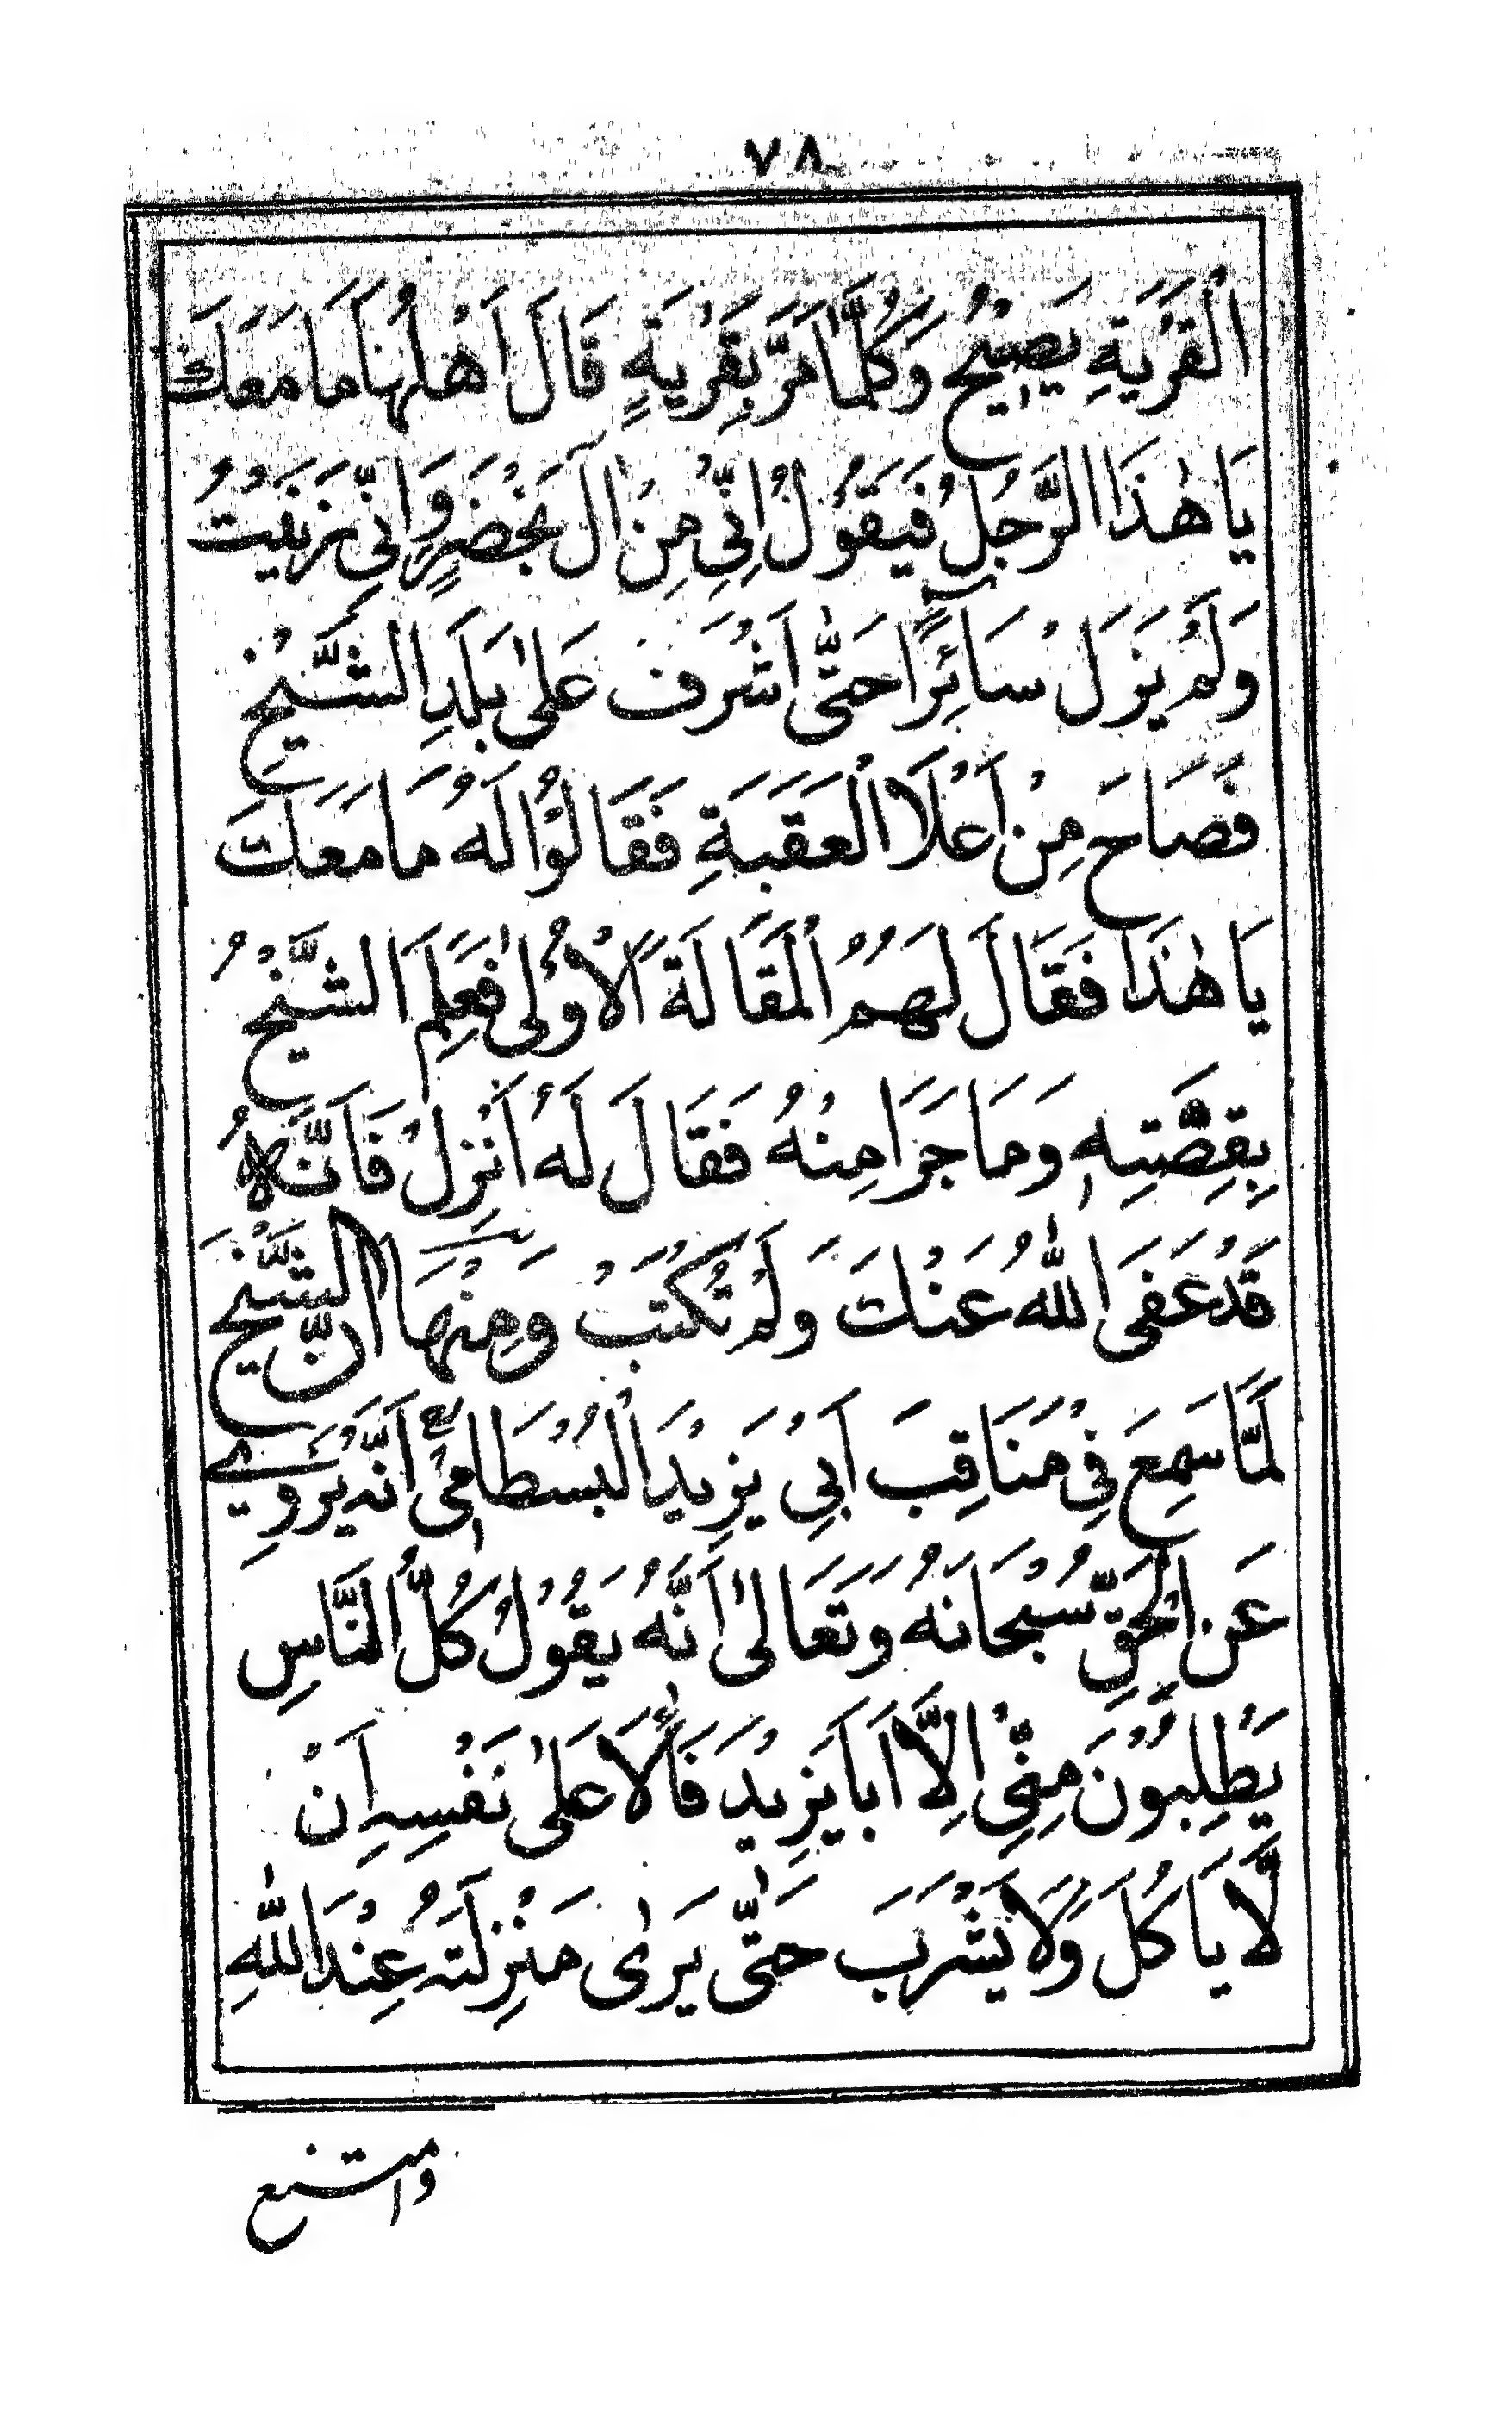 ٧٨
الْقَرْيَةِ يَصِيْحُ وَكُلَّمَا مَرَّ بِقَرْيَةٍ قَالَ اَهْلُهَا مَا مَعَكَ
يَا هٰذَا الرَّجُلُ فَيَقُوْلُ اِنِّيْ مِنْ اٰلِ بَخْضَرٍ وَاِنِّيْ زَنَيْتُ
وَلَمْ يَزَلْ سَآئِرًا حَتّٰى اَشْرَفَ عَلىٰ بَلَدِ الشَّيْخِ
فَصَاحَ مِنْ اَعْلَا الْعَقَبَةِ فَقَالُوْا لَهُ مَا مَعَكَ
يَا هٰذَا فَقَالَ لَهُمُ الْمَقَالَةَ الْاُوْلىٰ فَعَلِمَ الشَّيْخُ
بِقِصَّتِهٖ وَمَا جَرَا مِنْهُ فَقَالَ لَهُ اَنْزِلْ فَاَنَّهُ
قَدْ عَفَى اللّٰهُ عَنْكَ وَلَمْ تُكْتَبْ وَمِنْهَا اَنَّ الشَّيْخَ
لَمَّا سَمِعَ فِيْ مَنَاقِبَ اَبِيْ يَزِيْدَ الْبُسْطَامِيِّ اَنَّهُ يَرْوِيْ
عَنِ الْحَقِّ سُبْحَانَهُ وَتَعَالىٰ اَنَّهُ يَقُوْلُ كُلُّ النَّاسِ
يَطْلِبُوْنَ مِنِّيْ اِلَّا اَبَا يَزِيْدَ فَاٰلَا عَلىٰ نَفْسِهٖ اَنْ
لَّا يَاكُلَ وَلَا يَشْرَبَ حَتّٰى يَرىٰ مَنْزِلَتَهُ عِنْدَ اللّٰهِ
وامتنع